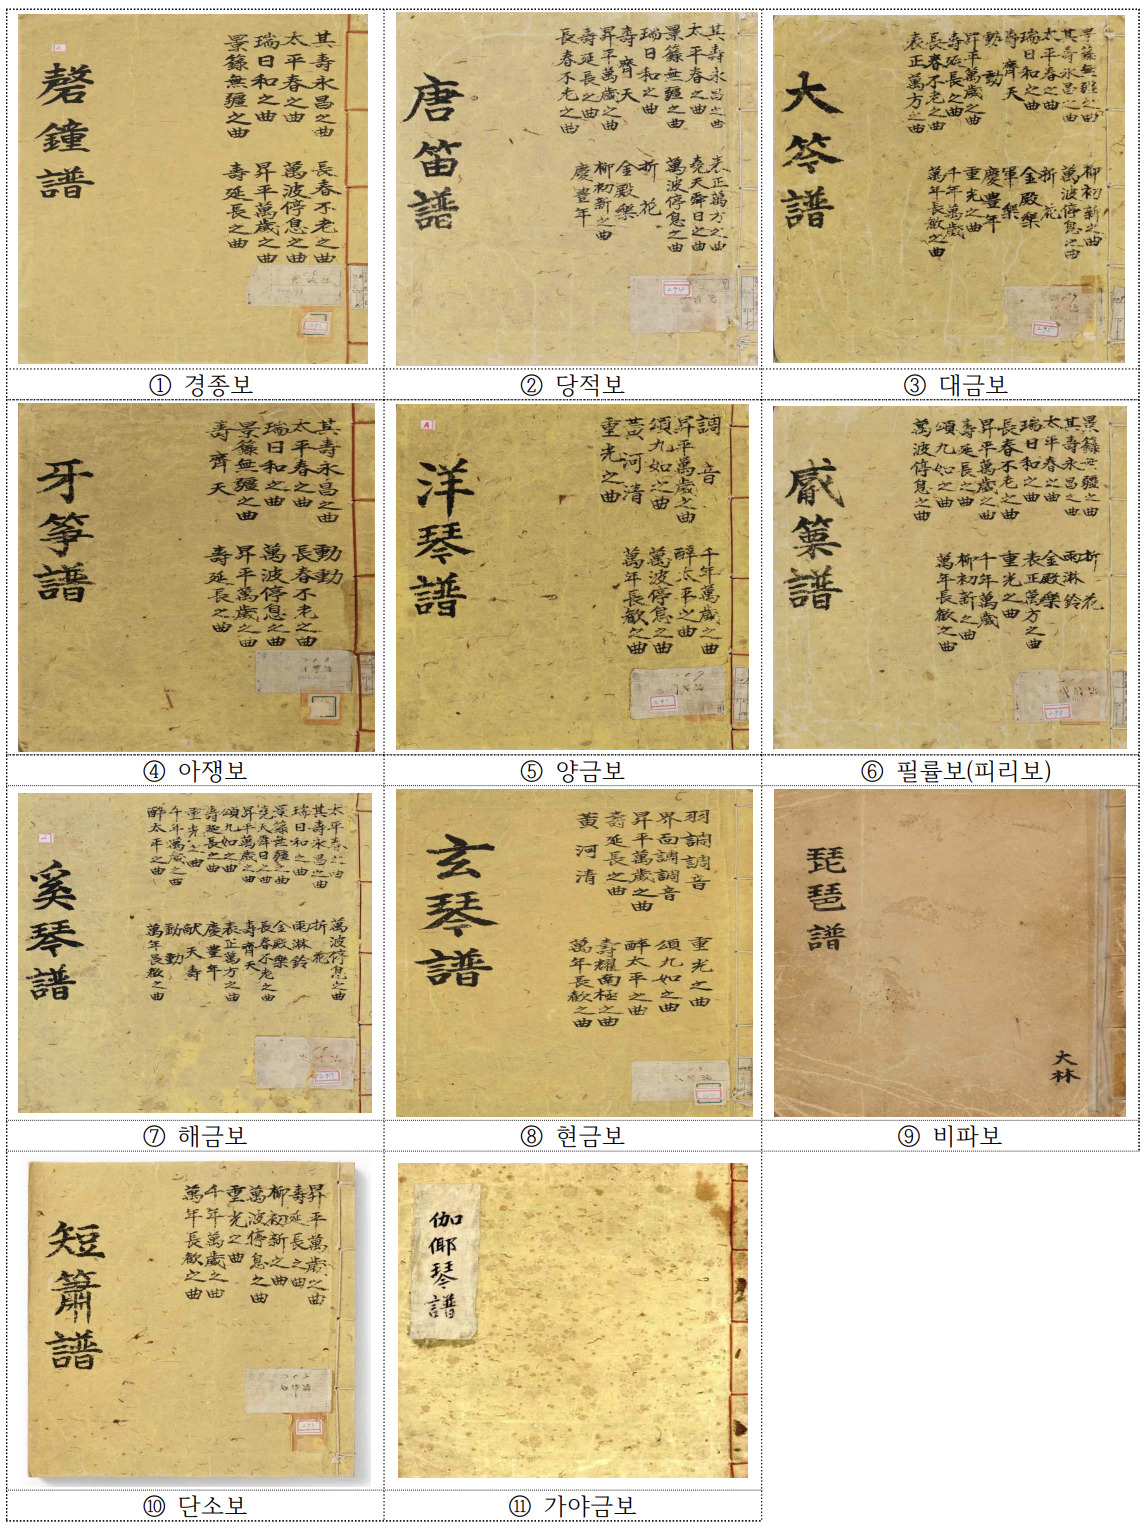 磬鐘譜
其壽永昌之曲
太平春之曲
瑞日和之曲
景籙無疆之曲
長春不老之曲
萬波停息之曲
昇平萬歲之曲
壽延長之曲
① 경종보
唐笛譜
其壽永昌之曲
太平春之曲
景籙無疆之曲
瑞日和之曲
壽齊天
昇平萬歲之曲
壽延長之曲
長春不老之曲
表正萬方之曲
堯天舜日之曲
萬波停息之曲
折花
金殿樂
柳初新之曲
慶豊年
② 당적보
大笒譜
景籙無疆之曲
其壽永昌之曲
太平春之曲
瑞日和之曲
壽齊天
動動
昇平萬歲之曲
壽延長之曲
長春不老之曲
表正萬方之曲
柳初新之曲
萬波停息之曲
折花
金殿樂
軍樂
慶豊年
重光之曲
千年萬歲
萬年長歡之曲
③ 대금보
牙箏譜
其壽永昌之曲
太平春之曲
瑞日和之曲
景籙無疆之曲
壽齊天
動動
長春不老之曲
萬波停息之曲
昇平萬歲之曲
壽延長之曲
④ 아쟁보
洋琴譜
調音
昇平萬歲之曲
頌九如之曲
黃河清
重光之曲
千年萬歲之曲
醉太平之曲
萬波停息之曲
萬年長歡之曲
⑤ 양금보
觱篥譜
景籙無疆之曲
其壽永昌之曲
太平春之曲
瑞日和之曲
長春不老之曲
昇平萬歲之曲
壽延長之曲
頌九如之曲
萬波停息之曲
折花
雨淋鈴
金殿樂
表正萬方之曲
重光之曲
千年萬歲
柳初新之曲
萬年長歡之曲
⑥ 필률보(피리보)
奚琴譜
太平春之曲
其壽永昌之曲
瑞日和之曲
景籙無疆之曲
堯天舜日之曲
昇平萬歲之曲
頌九如之曲
壽延長之曲
重光之曲
千年萬歲之曲
醉太平之曲
萬波停息之曲
折花
雨淋鈴
金殿樂
長春不老之曲
壽齊天
表正萬方之曲
慶豊年
献天壽
動動
萬年長歡之曲
⑦ 해금보
玄琴譜
羽調調音
界面調調音
昇平萬歲之曲
壽延長之曲
黃河清
重光之曲
頌九如之曲
醉太平之曲
壽耀南極之曲
萬年長歡之曲
⑧ 현금보
琵琶譜
大林
⑨ 비파보
短簫譜
昇平萬歲之曲
壽延長之曲
柳初新之曲
萬波停息之曲
重光之曲
千年萬歲之曲
萬年長歡之曲
⑩ 단소보
伽倻琴譜
⑪ 가야금보